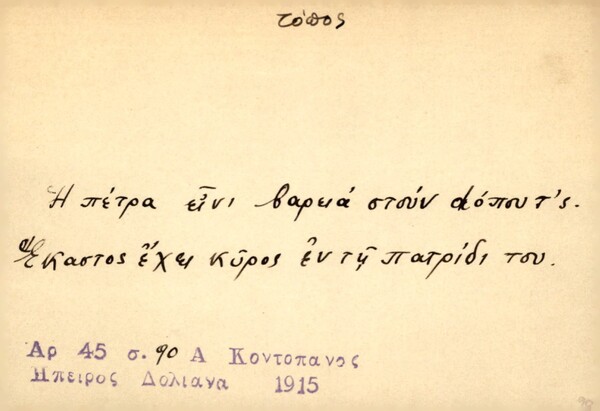 τόπος
Ἡ πέτρα εἶνι βαρειά στούν τόπου τ'ς.
Ἕκαστος ἔχει κῦρος ἐν τῇ πατρίδι του.
Αρ 45 σ. 90 Α Κοντοπανος
Ηπειρος Δολιανα 1915